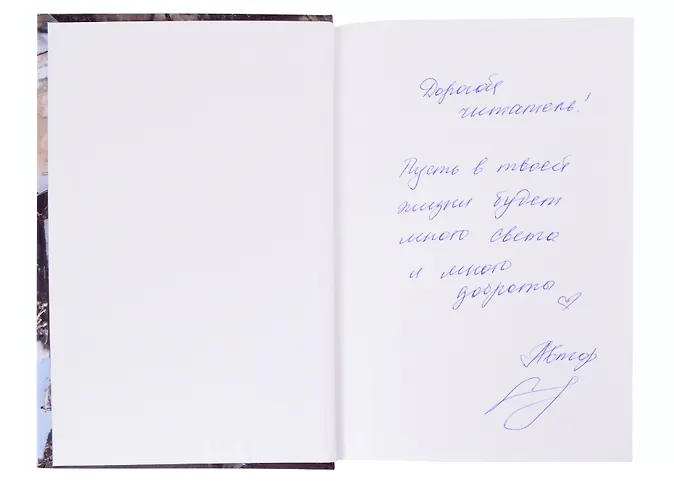 Дорогой
читатель!
Пусть в твоей
жизни будет
много света
и много
доброты
Автор